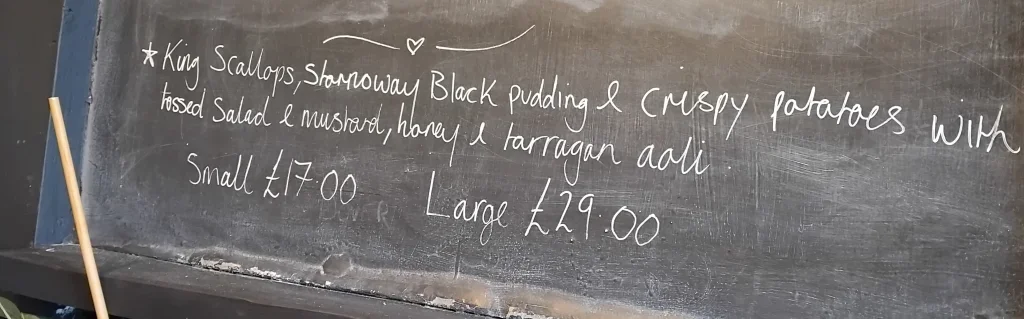 *King Scallops, Stornoway Black pudding & crispy potatoes with
tossed Salad & mustard, honey & tarragan aoli.
Small £17.00 Large £29.00